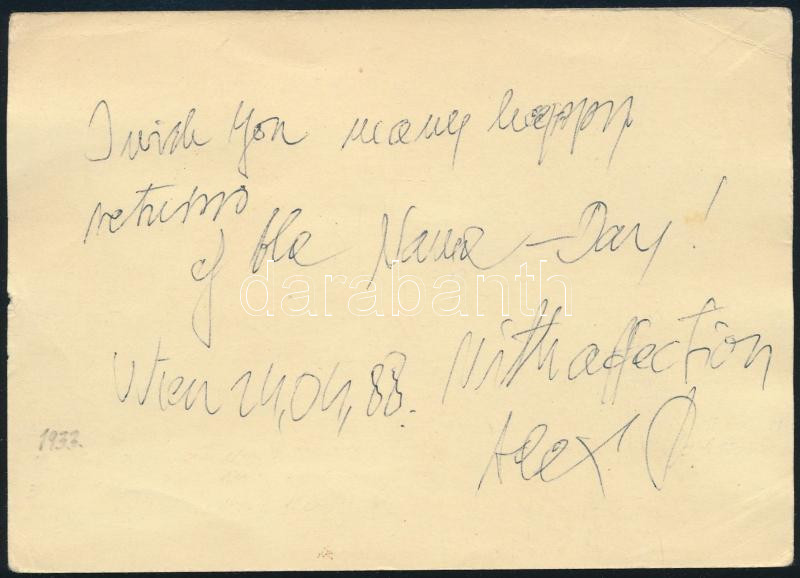 I wish you many happy
returns
of the Name-Day!
darabanth
With affection
Wien 24,04,88.
1933.
Alex